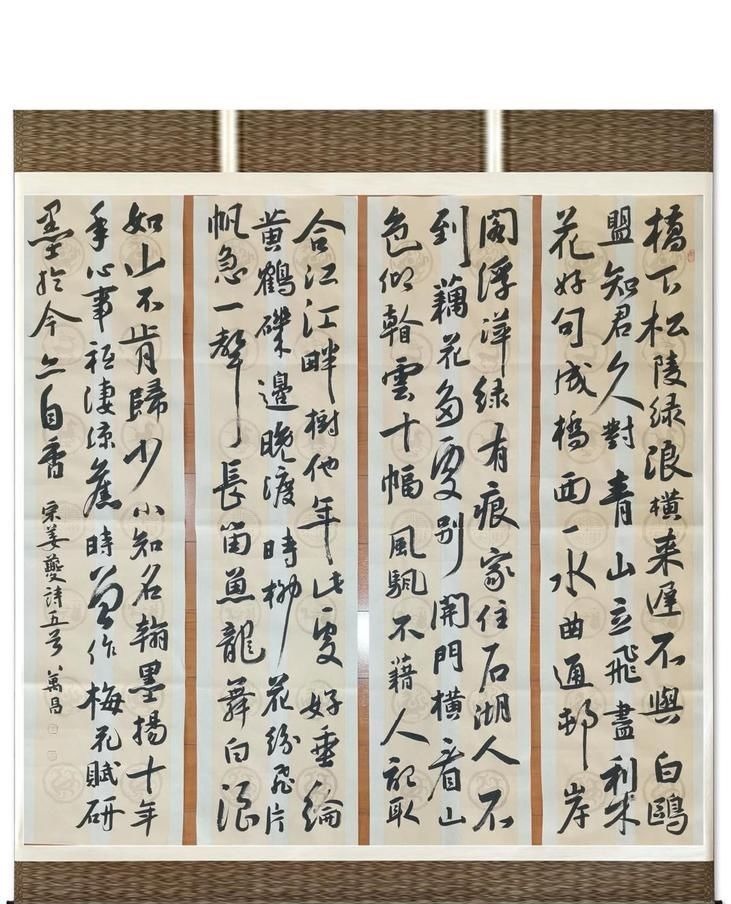 橋下松陵绿浪橫来遲不與白鷗
盟知君久對青山立飛盡梨
花好句成橋西一水曲通邨岸
閣浮萍绿有痕家住石湖人不
到藕花多處別開門橫看山
色仰看雲十幅風颿不藉人記取
合江江畔樹他年此處好垂綸
黄鶴磯邊晚渡時柳花紛飛片
帆急一聲長笛魚龍舞白浪
如山不肯歸少小知名翰墨揚十年
心事祗凄涼舊時曾作梅花賦研
墨於今亦自香
宋姜夔詩五首 萬昌